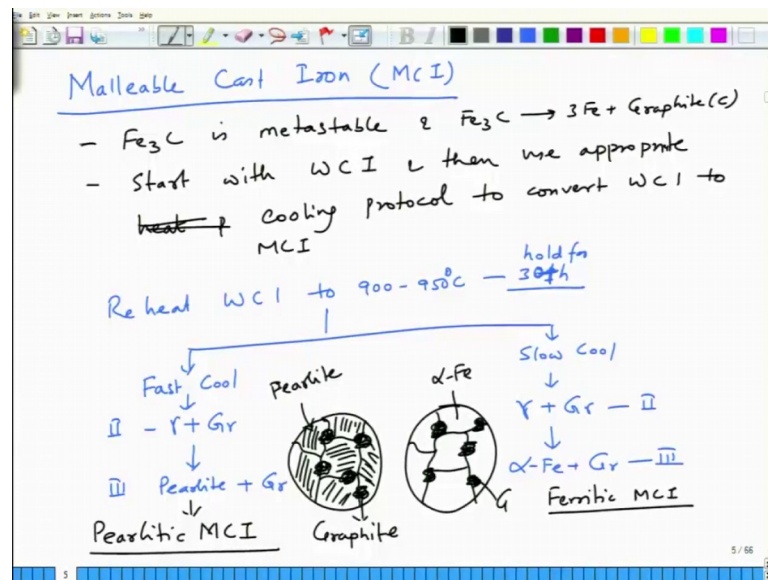 File Edit View Insert Actions Tools Help
B I
Malleable Cast Iron (MCI)
- Fe3C is metastable & Fe3C → 3Fe + Graphite (C)
- Start with WCI & then use approprate
cooling protocol to convert WCI to
MCI
Reheat WCI to 900-950°C — hold for
Fast Cool
II - γ + Gr
III Pearlite + Gr
Pearlitic MCI
Pearlite
Graphite
α-Fe
G
Slow Cool
γ + Gr - II
α-Fe + Gr - III
Ferritic MCI
5 / 66
5